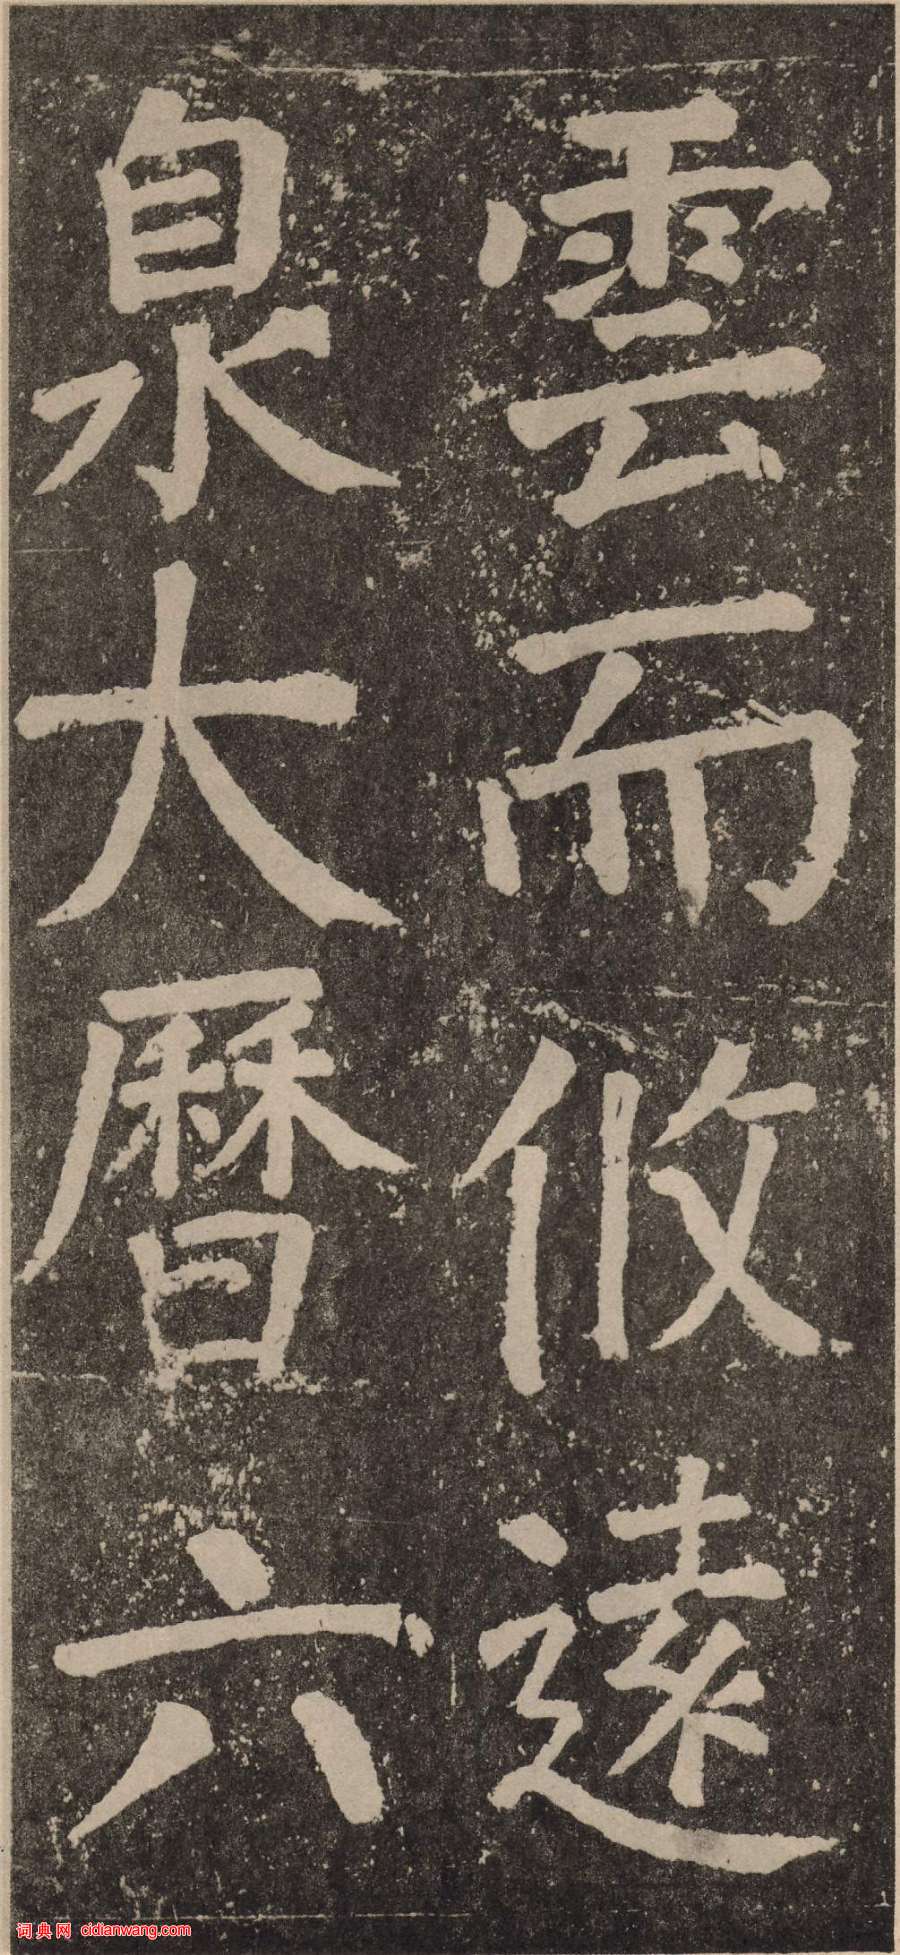 雲而攸遠
泉大曆六
词典网 cidianwang.com